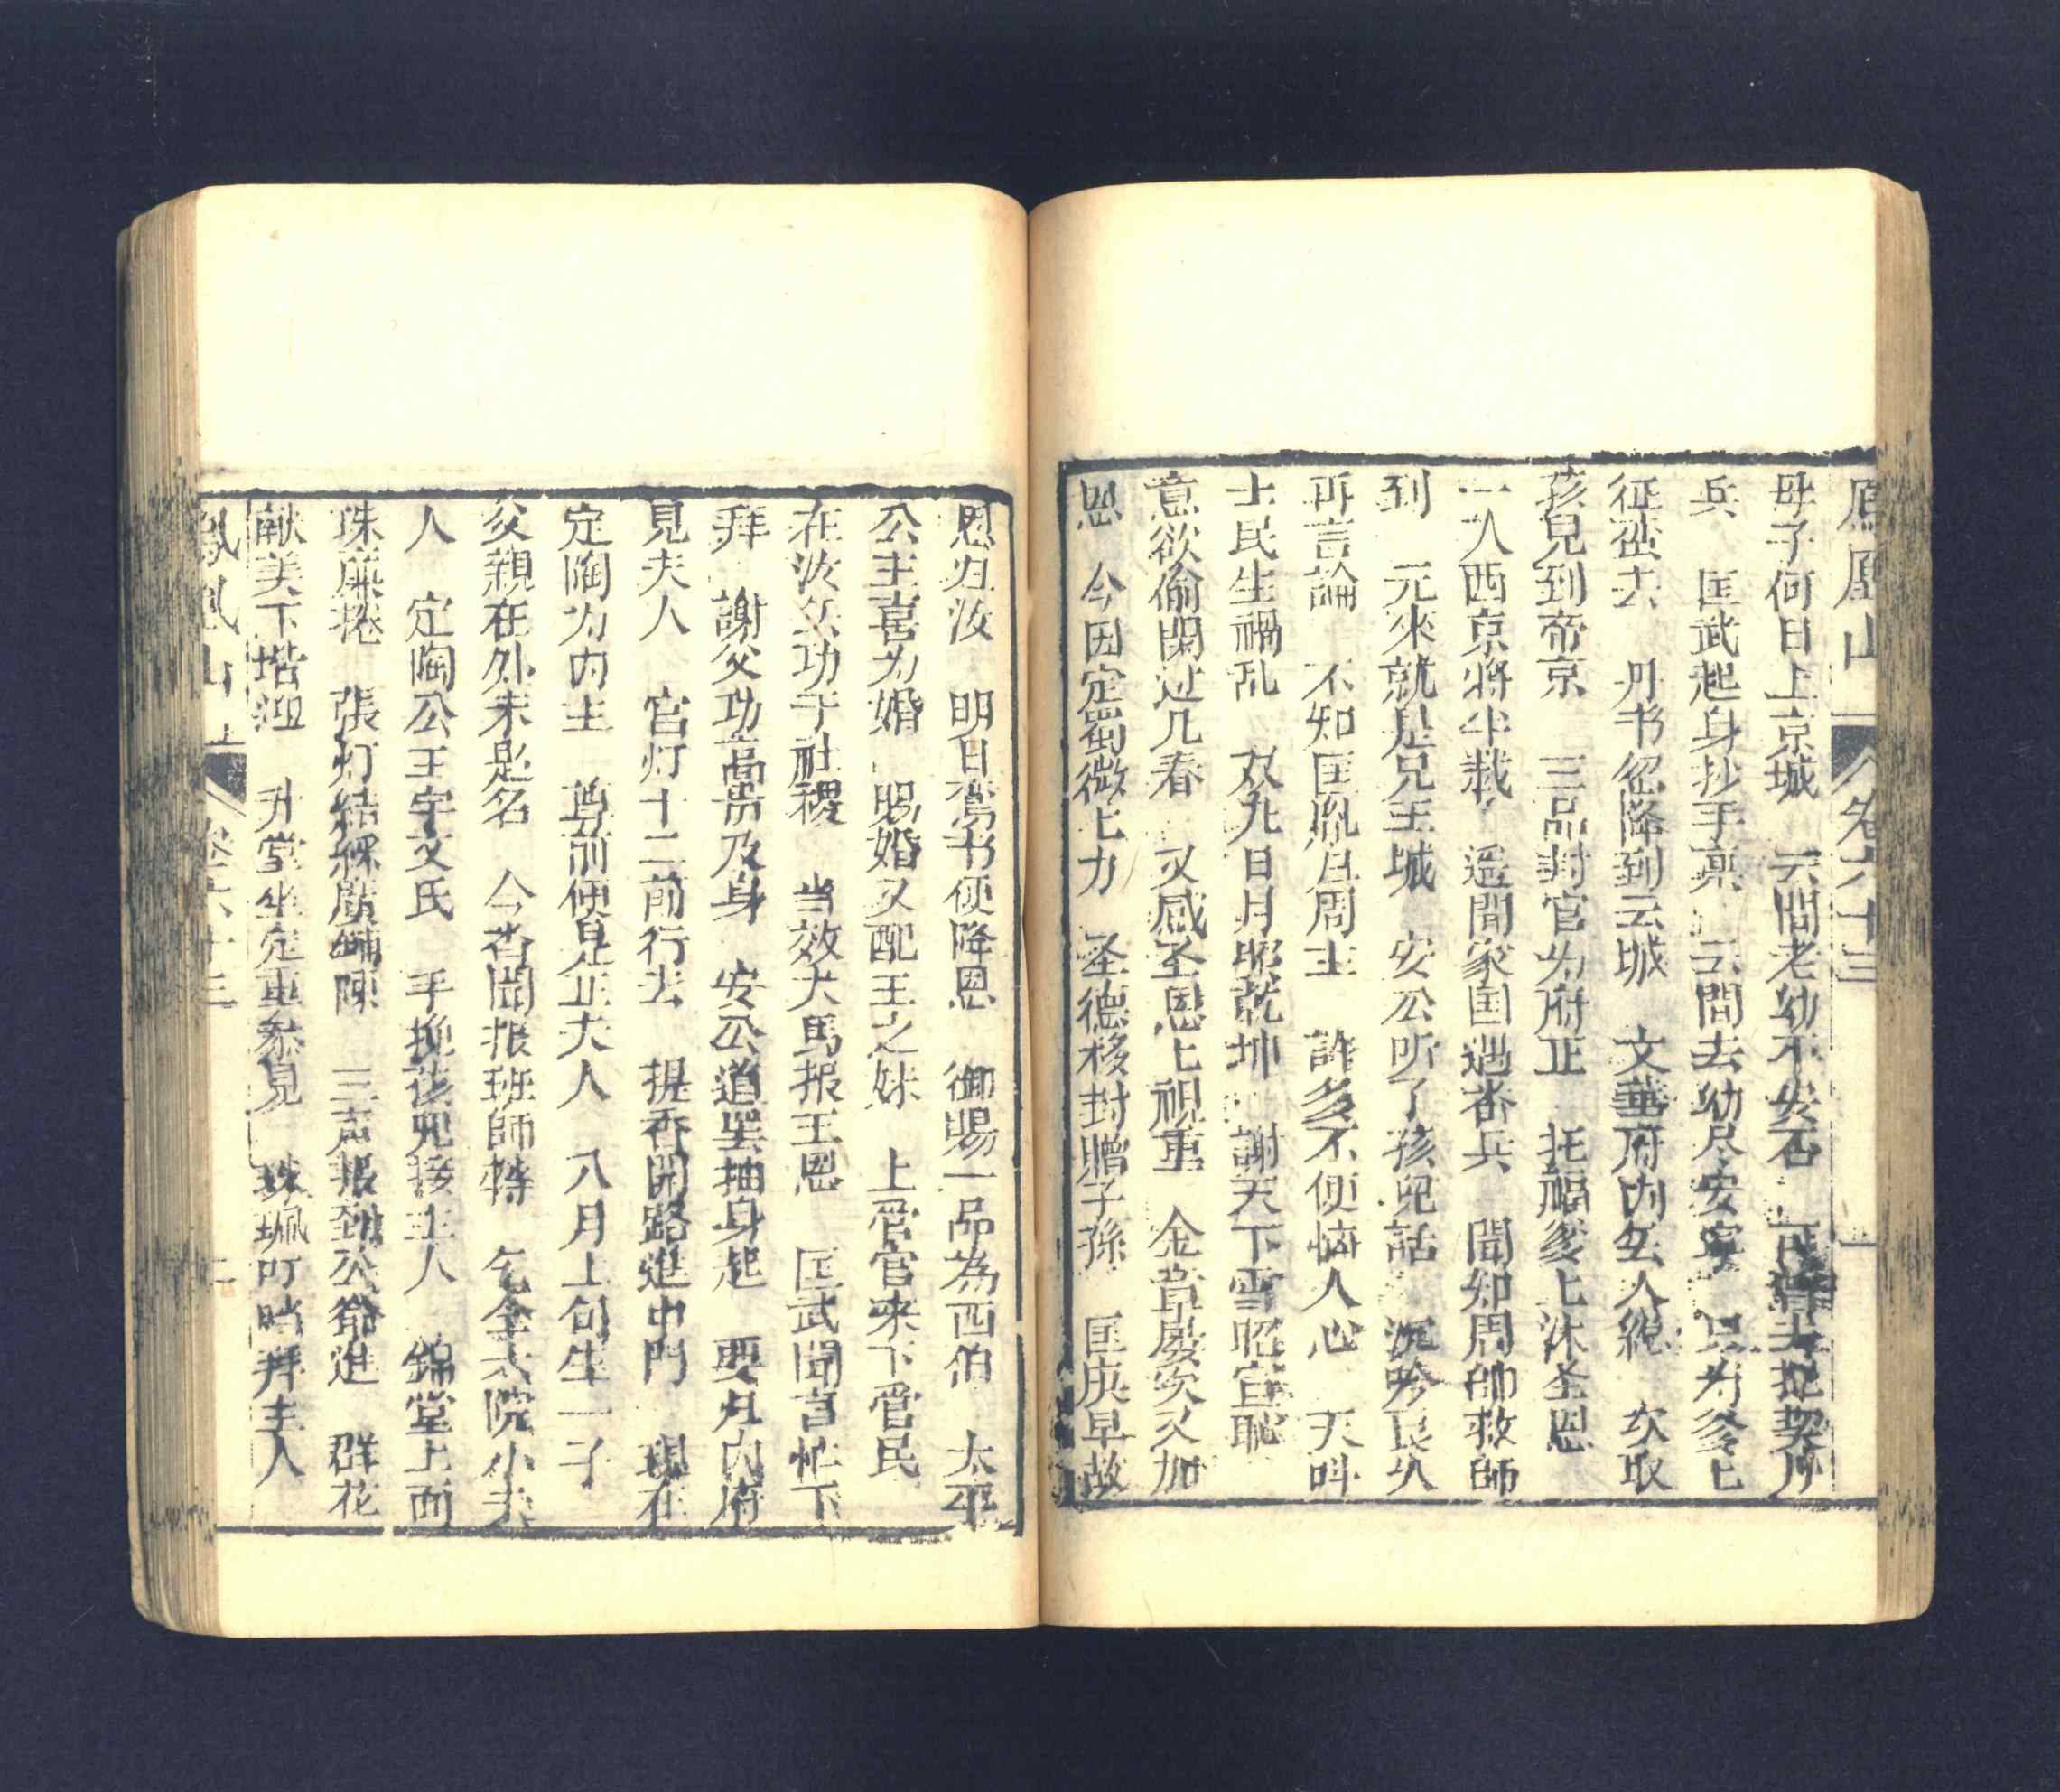 鳳凰山 卷六十三 一
母子何日上京城 云間老幼不安否
兵 匡武起身抄手禀 云間去幼尽安寕 只为爹匕
征蛮去 丹书忽降到云城 文華府内去人繞 欢取
孩兒到帝京 三品封官为府正 托福爹匕沐圣恩
一人西京將半載 遥聞家国遇畨兵 聞知周帥救師
到 元來就是兄王城 安公听了孩兒話 沉吟良久
再言論 不知匡胤旦周主 許多不便恼人心 天呌
士民生禍乱 双九日月昭乾坤 謝天下雪昭宣恥
意欲偷閑过几春 又感圣恩匕視重 金章屡次又加
恩 今因定蜀微匕力 圣德移封贈子孫 匡庚早故
恩归汝 明日鸾书便降恩 御賜一品為西伯 太平
公主喜为婚 賜婚又配王之妹 上管官来下管民
在汝無功于社稷 当效犬馬报王恩 匡武聞言忙下
拜 謝父功高贵及身 安公道罢抽身起 要归内府
見夫人 官灯十二前行去 提香開路進中門 現在
定陶为内主 尊前便是正夫人 八月上旬生一子
父親在外未起名 今者闻报班師轉 乞令太院小夫
人 定陶公主宇文氏 手挽孩兒接主人 錦堂上面
珠簾捲 張灯結綵廣鋪陳 三声报到公爺進 群花
献美下堦迎 升堂坐定重叅見 珠珮叮噹拜主人
鳳凰山 卷六十三 二